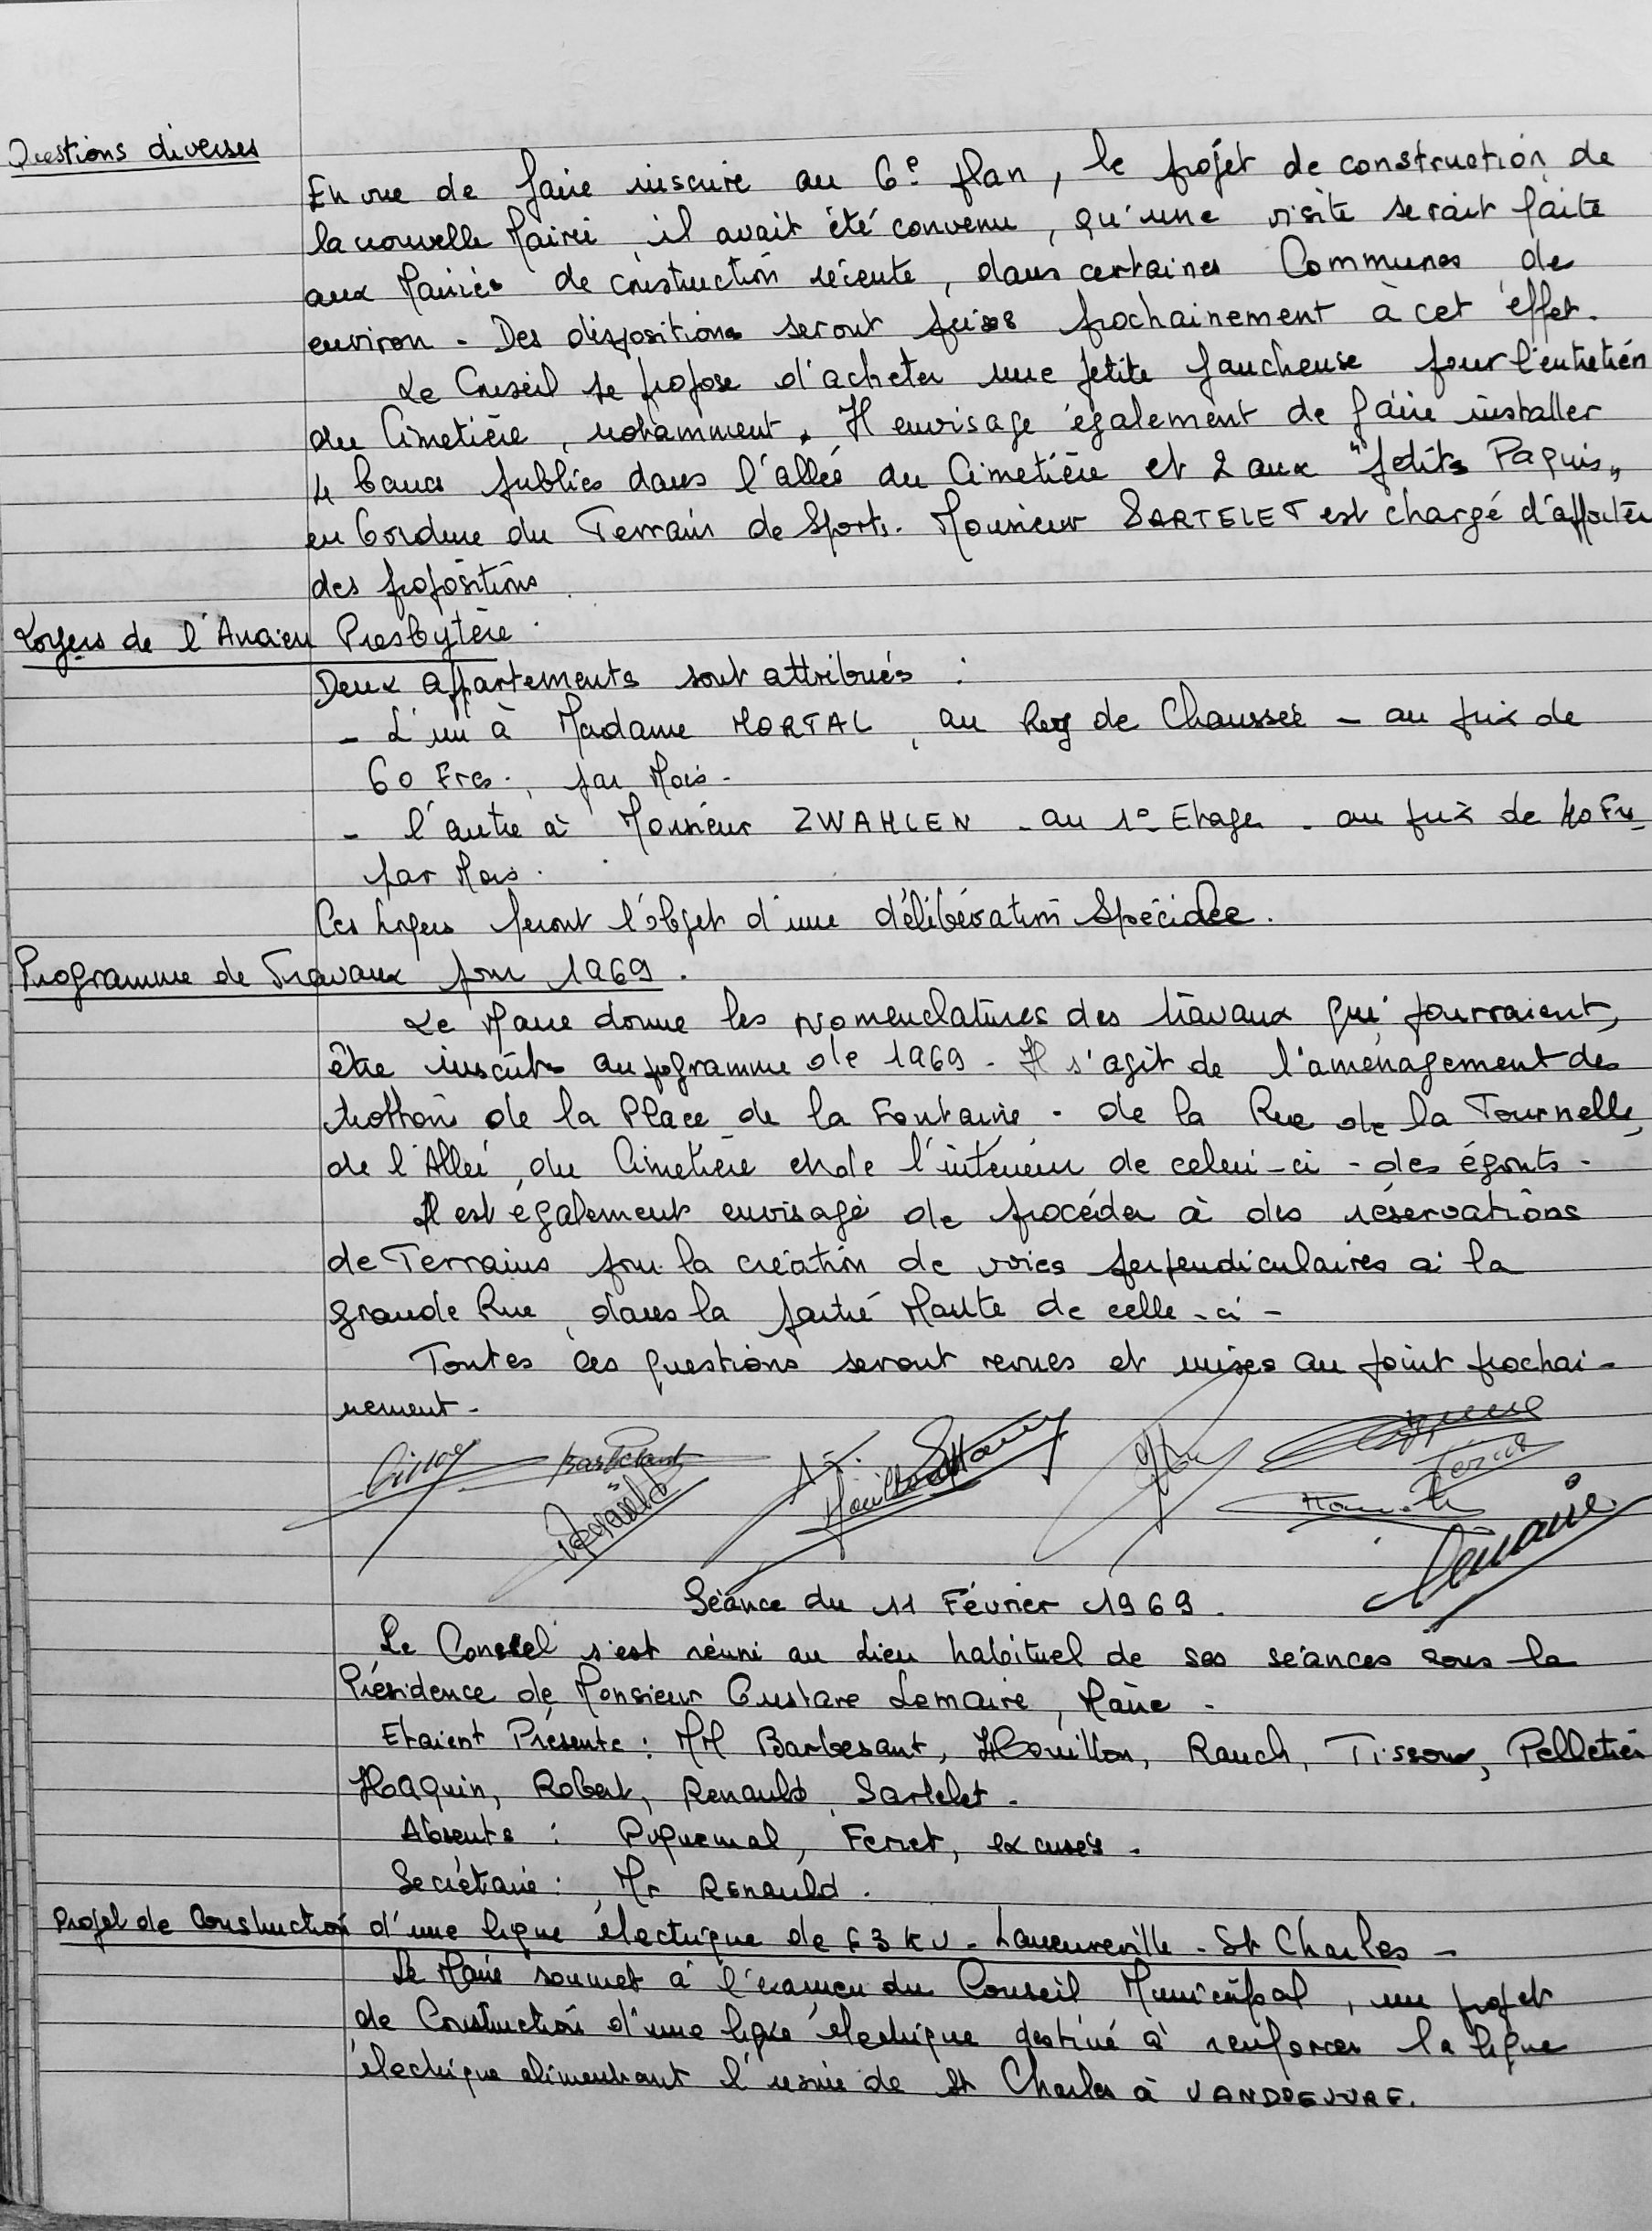 Questions diverses
En vue de faire inscrire au 6e plan, le projet de construction de
la nouvelle Mairie il avait été convenu, qu'une visite serait faite
aux Mairies de construction récente, dans certaines Communes de
environ - Des dispositions seront prises prochainement à cet effet.
Le Conseil se propose d'acheter une petite faucheuse pour l'entretien
du Cimetière, notamment. Il envisage également de faire installer
4 bancs publics dans l'allée du Cimetière et 2 aux "petits Paquis"
en bordure du Terrain de Sports. Monsieur SARTELET est chargé d'apporter
des propositions.
Loyers de l'Ancien Presbytère.
Deux appartements sont attribués :
- L'un à Madame MORTAL, au Rez de Chaussée - au prix de
60 Frcs., par Mois -
- l'autre à Monsieur ZWAHLEN - au 1e Etage - au prix de 40 Frs
par Mois.
Ces loyers feront l'objet d'une délibération Spéciale.
Programme de Travaux pour 1969.
Le Maire donne les Nomenclatures des travaux qui pourraient,
être inscrits au programme de 1969 - Il s'agit de l'aménagement des
trottoirs de la Place de la Fontaine - de la Rue de la Tournelle,
de l'Allée, du Cimetière et de l'intérieur de celui-ci - des égouts -
Il est également envisagé de procéder à des réservations
de Terrains pour la création de voies perpendiculaires à la
grande Rue, dans la partie Haute de celle-ci -
Toutes ces questions seront revues et mises au point prochai-
nement -
Barbesant
Renauld
Houillon
Lemaire
Séance du 11 Février 1969.
Le Conseil s'est réuni au Lieu habituel de ses séances sous la
Présidence de Monsieur Gustave Lemaire, Maire -
Etaient Présents : MM Barbesant, Houillon, Rauch, Tisson, Pelletier
Haquin, Robert, Renauld, Sartelet -
Absents : Puquemal, Ferret, excusés -
Secrétaire : Mr Renauld.
Projet de Construction d'une ligne électrique de 63 KV - Laneuveville - St Charles -
Le Maire soumet à l'examen du Conseil Municipal, un projet
de Construction d'une ligne électrique destiné à renforcer la ligne
électrique alimentant l'usine de St Charles à VANDOEUVRE.